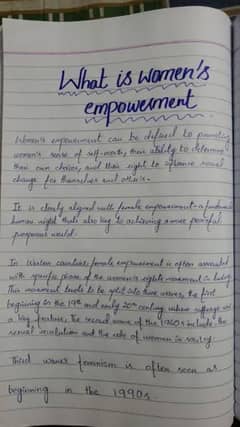 What is women's
empowerment
Women's empowerment can be defined to promoting
women's sense of self-worth, their ability to determine
their own choices, and their right to influence social
change for themselves and others.
It is closely aligned with female empowerment - a fundamental
human right that's also key to achieving a more peaceful
prosperous world.
In Western countries, female empowerment is often associated
with specific phase of the women's rights movement in history.
This movement tends to be split into three waves, the first
beginning in the 19th and early 20th century where suffrage
a key feature. The second wave of the 1960s include the
sexual revolution and the role of women in society.
Third wave feminism is often seen as
beginning in the 1990s.